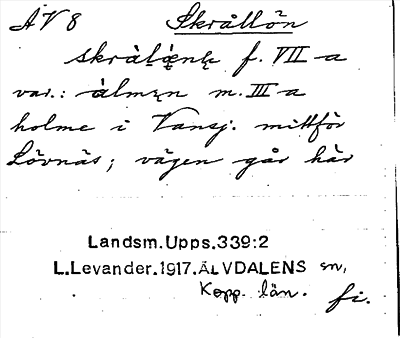 ÄV 8 Skrållön
skràlǫ́ęnę f. VII-a
var.: àlmęn m. III-a
holme i Vansj. mittför
Lövnäs; vägen går här
Landsm.Upps.339:2
L.Levander.1917.ÄLVDALENS sn,
Kopp. län. fi.